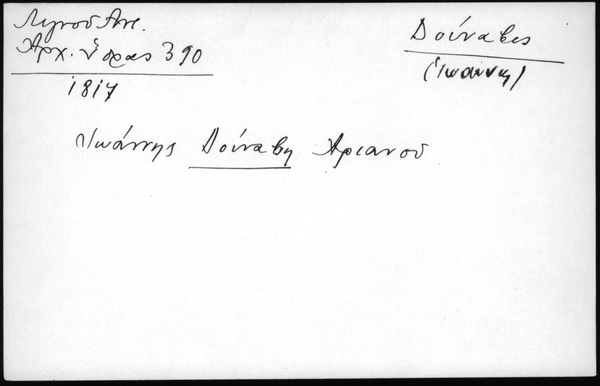 Λιγνοῦ Ἀντ.
Ἀρχ. Ὕδρας 390
1817
Δούναβης
(Ἰωάννη)
Ἰωάννης Δούναβη Ἀριανοῦ